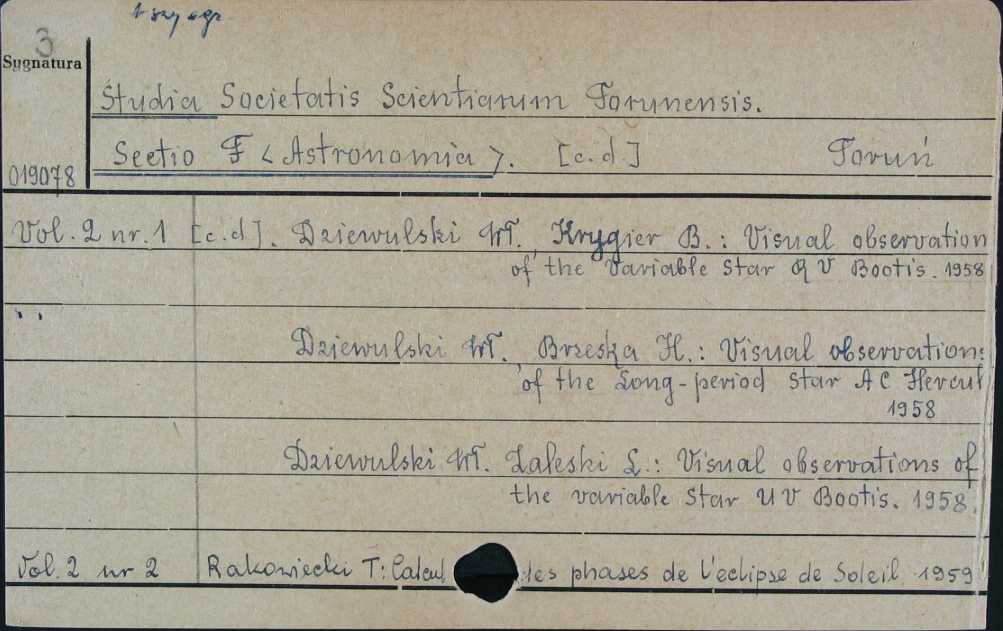 3
Sygnatura
Studia Societatis Scientiarum Torunensis.
Sectio F < Astronomia >. [c.d.] Toruń
019078
Vol. 2 nr. 1 [c.d]. Dziewulski Wł., Krygier B.: Visual observation
of the variable star RV Bootis. 1958
Dziewulski Wł. Brzeska H.: Visual observations
of the Long-period star AC Hercul
1958
Dziewulski Wł. Zaleski L.: Visual observations of
the variable star UV Bootis. 1958.
Vol. 2 nr 2 Rakowiecki T: Calcul des phases de l'eclipse de Soleil 1959